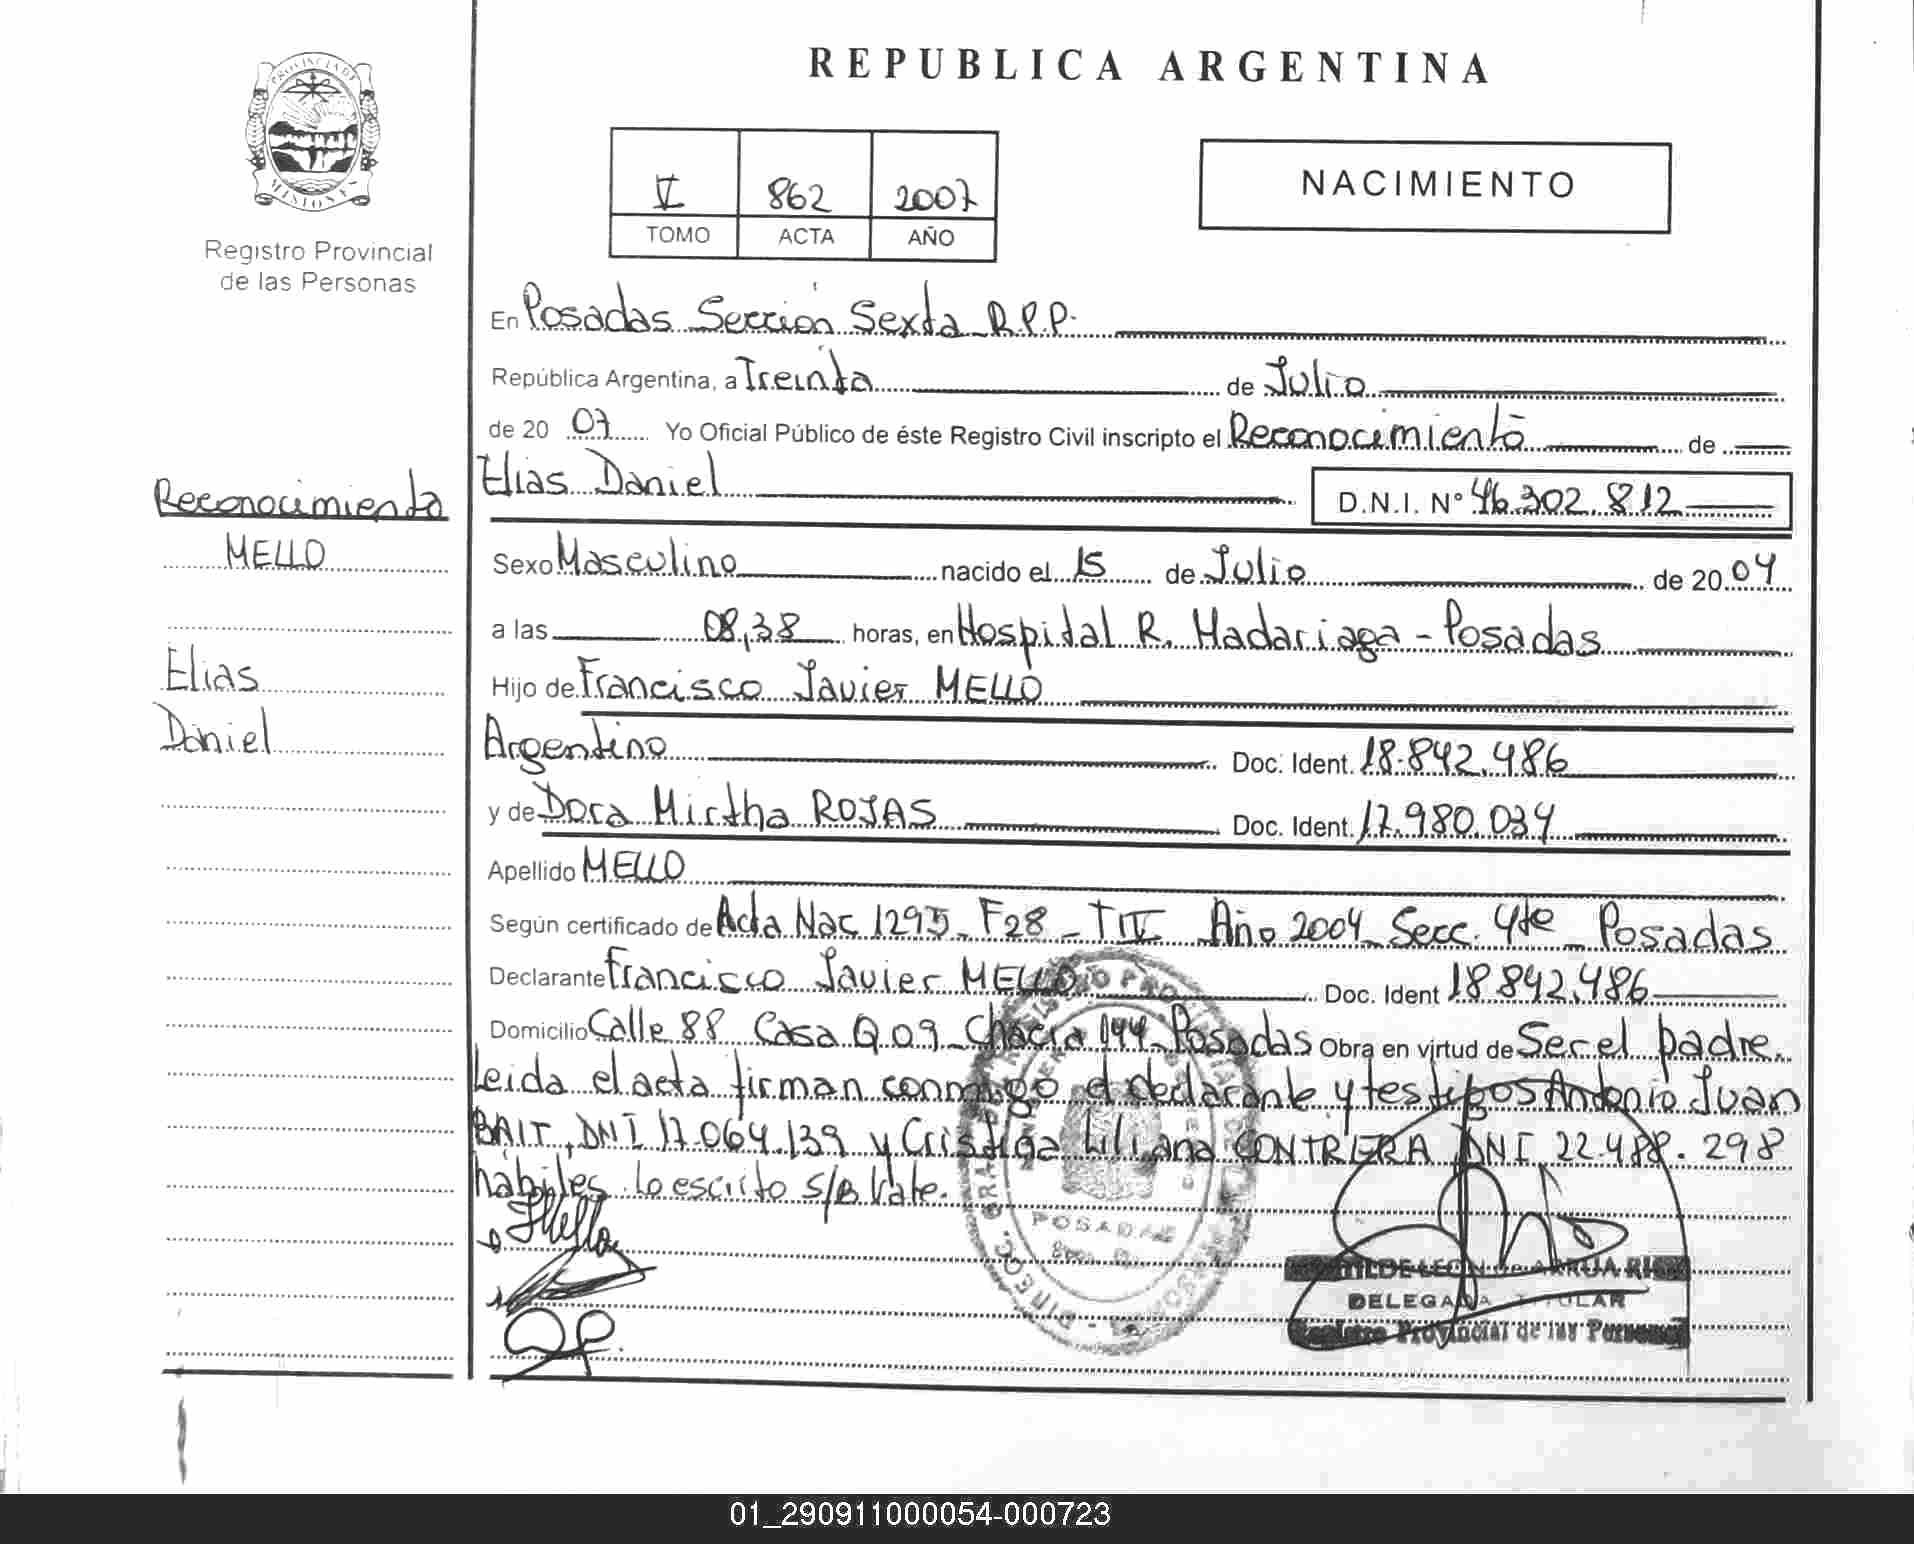 PROVINCIA DE
MISIONES
Registro Provincial
de las Personas
REPUBLICA ARGENTINA
V 862 2007
TOMO ACTA AÑO
NACIMIENTO
En Posadas Sección Sexta R.P.P.
República Argentina, a Treinta de Julio
de 20 07 Yo Oficial Público de éste Registro Civil inscripto el Reconocimiento de
Elias Daniel D.N.I. N° 46.302.812
Reconocimiento
MELLO
Elias
Daniel
Sexo Masculino nacido el 15 de Julio de 20 04
a las 08,38 horas, en Hospital R. Madariaga - Posadas
Hijo de Francisco Javier MELLO
Argentino Doc. Ident. 18.842.486
y de Dora Mirtha ROJAS Doc. Ident. 17.980.034
Apellido MELLO
Según certificado de Acta Nac 1295 - F28 - T IV Año 2004 Secc. 4te Posadas
Declarante Francisco Javier MELLO Doc. Ident 18 842.486
Domicilio Calle 88 Casa Q 09 - Chacra 144 - Posadas Obra en virtud de Ser el padre.
Leida el acta firman conmigo el declarante y testigos Antonio Juan
BAIT, DNI 17.064.139 y Cristina Liliana CONTRERA DNI 22.488.298
hábiles. Lo escrito s/B Vale.
POSADAS
DELEGADA TITULAR
Registro Provincial de las Personas
01_290911000054-000723